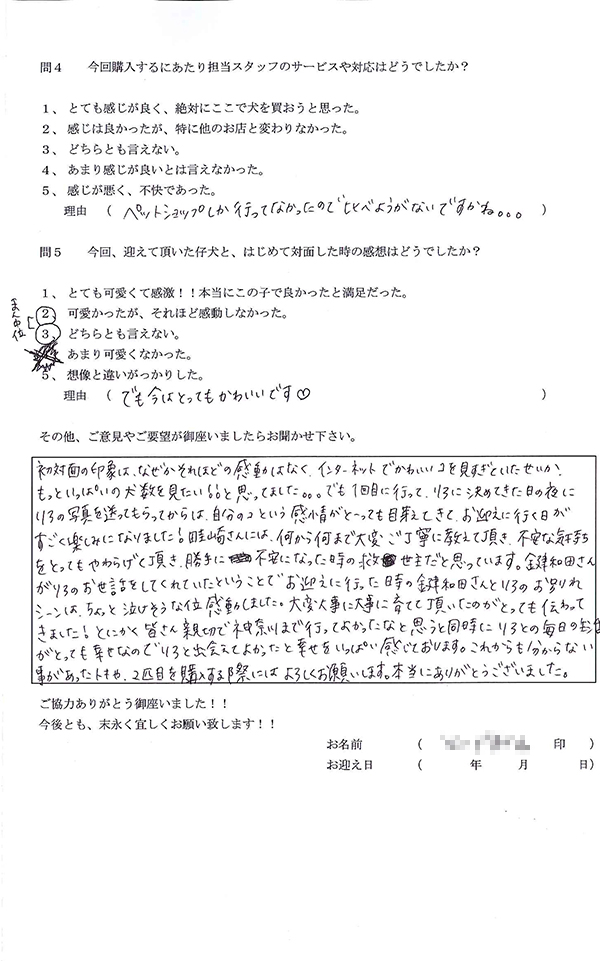 問4 今回購入するにあたり担当スタッフのサービスや対応はどうでしたか？
1、とても感じが良く、絶対にここで犬を買おうと思った。
2、感じは良かったが、特に他のお店と変わりなかった。
3、どちらとも言えない。
4、あまり感じが良いとは言えなかった。
5、感じが悪く、不快であった。
理由 （ ペットショップしか行ってなかったので比べようがないですかね。。。 ）
問5 今回、迎えて頂いた仔犬と、はじめて対面した時の感想はどうでしたか？
1、とても可愛くて感激！！本当にこの子で良かったと満足だった。
まん中位
2、可愛かったが、それほど感動しなかった。
3、どちらとも言えない。
あまり可愛くなかった。
5、想像と違いがっかりした。
理由 （ でも今はとってもかわいいです♡ ）
その他、ご意見やご要望が御座いましたらお聞かせ下さい。
初対面の印象は、なぜかそれほどの感動はなく、インターネットでかわいいコを見すぎていたせいか、
もっといっぱいの犬数を見たい!!と思ってました。。。でも1回目に行って、リろに決めてきた日の夜に
リろの写真を送ってもらってからは、自分のコという感情がと〜っても目芽えてきて、お迎えに行く日が
すごく楽しみになりました!畦崎さんには、何から何まで大変ご丁寧に教えて頂き、不安な気持ち
をとってもやわらげて頂き、勝手に不安になった時の救世主だと思っています。鍵和田さん
がリろのお世話をしてくれていたということでお迎えに行った日時の鍵和田さんとリろのお別れ
シーンは、ちょっと泣けそうな位感動しました。大変大事に大事に育てて頂いたのがとっても伝わって
きました!とにかく皆さん親切で神奈川まで行ってよかったなと思うと同時にリろとの毎日の生活
がとっても幸せなのでリろと出会えてよかったと幸せをいっぱい感じております。これからも分からない
事があったトキや、2匹目を購入する際にはよろしくお願いします。本当にありがとうございました。
ご協力ありがとう御座いました！！
今後とも、末永く宜しくお願い致します！！
お名前 （ 印 ）
お迎え日 （ 年 月 日）